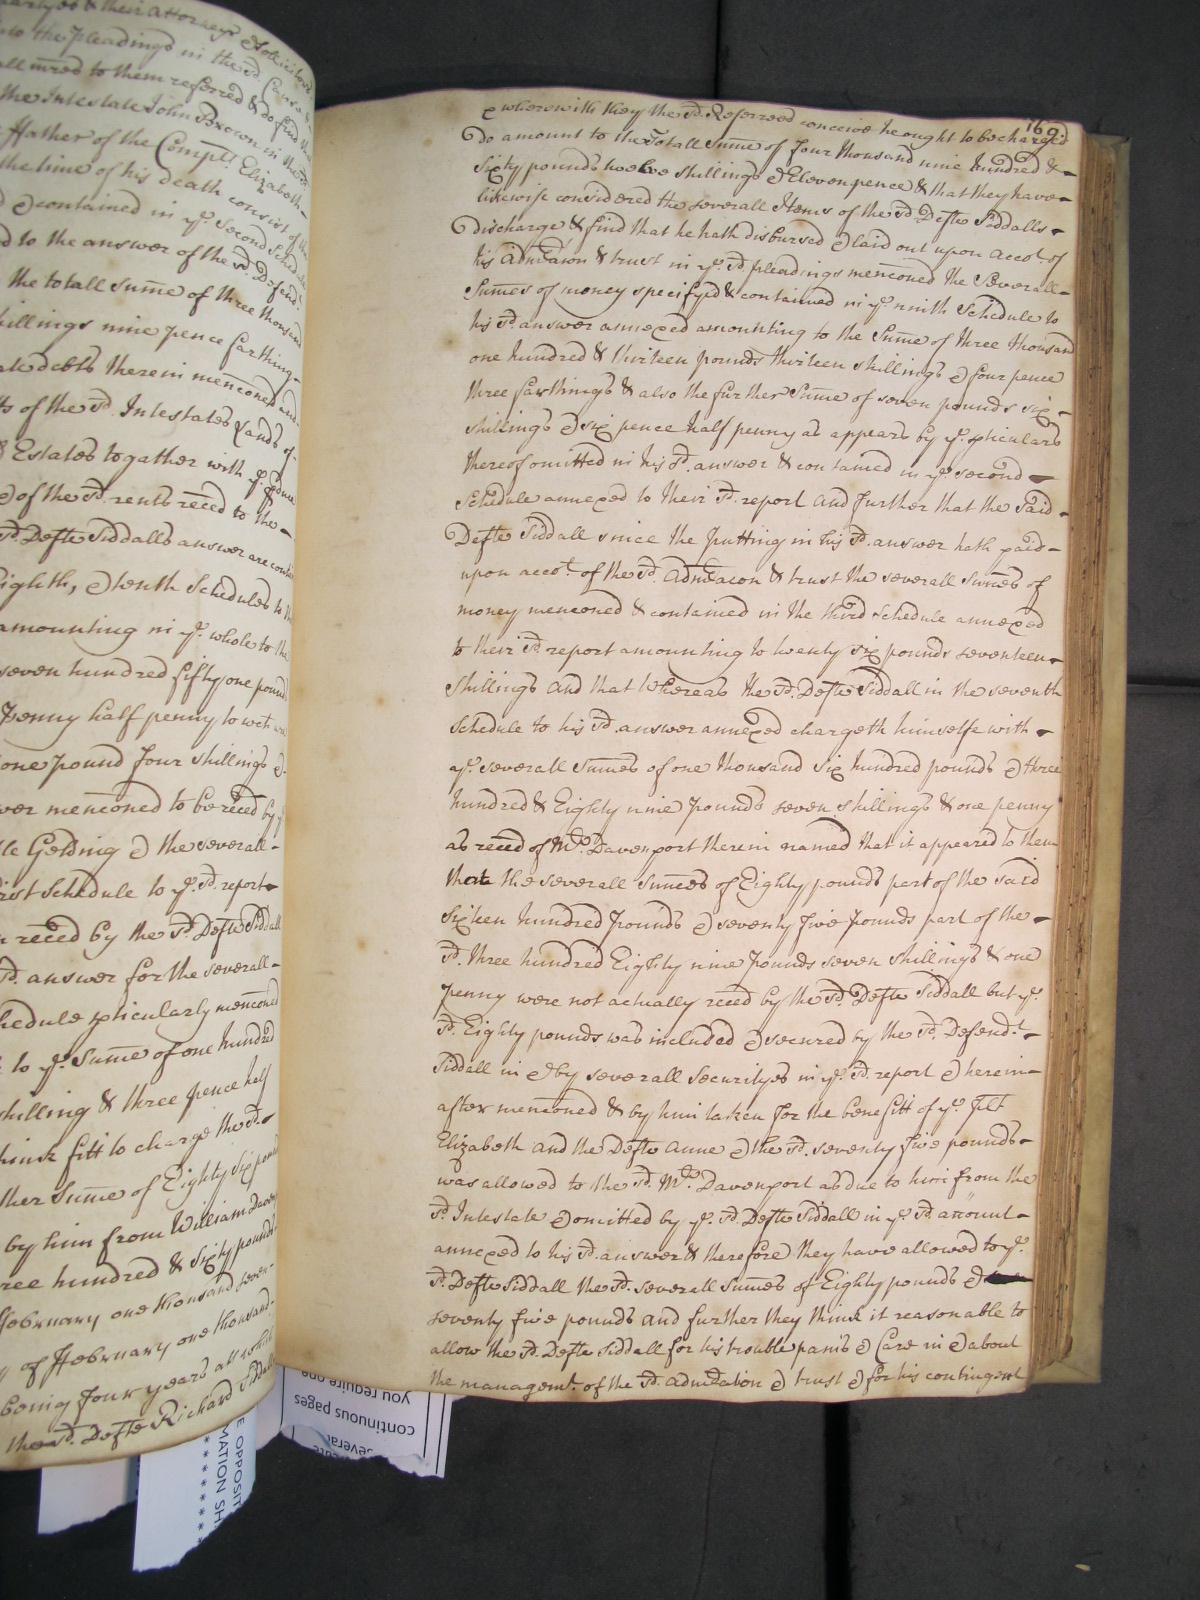 partyes & their Attorneys & Sollicitors
into the pleadings in the sd. Cause &
all
the Intestate John Broxon in the sd.
ffather of the Complt. Elizabeth
the time of his death consist of
contained in ye. second schedule
to the answer of the sd. Defend.
the totall sume of three thousand
shillings nine pence farthing
debts therein menconed and
of the sd. Intestates Lands of
Estates togather with ye.
of the sd. rents reced to the
sd. Defte Siddalls answer are
Eighth, & tenth Schedules to
amounting in ye. whole to the
seven hundred fifty one pound
penny half penny to wit
one pound four shillings &
menconed to be reced by
Gelding & the severall
first schedule to ye. sd. report
reced by the sd. Defte Siddall
sd. answer for the severall
schedule pticularly menconed
to ye. Sume of one hundred
shilling & three pence half
think fitt to charge the sd.
further sume of Eighty six pounds
by him from William
three hundred & sixty pounds
ffebruary one thousand seven
of ffebruary one thousand
being four years
the sd. Defte Richard Siddall
169.
wherewith they the sd. Referrees conceive he ought to be charged
do amount to the Totall sume of four thousand nine hundred &
Sixty pounds twelve shillings & Eleven pence & that they have
likewise considered the severall Items of the sd. Defte Siddalls
Discharge & find that he hath disbursed & laid out upon accot. of
his Admcon & trust in ye. sd. pleadings menconed the Severall
Sumes of money specifyed & contained in ye. ninth Schedule to
his sd. answer annexed amounting to the Sume of three thousand
one hundred & thirteen pounds thirteen shillings & four pence
three farthings & also the further Sume of seven pounds six
shillings & six pence half penny as appears by ye. pticulars
thereof omitted in his sd. answer & contained in ye. second
schedule annexed to their sd. report and further that the said
Defte Siddall since the putting in his sd. answer hath paid
upon accot. of the sd. Admcon & trust the severall sumes of
money menconed & contained in the third schedule annexed
to their sd. report amounting to twenty six pounds seventeen
shillings and that Whereas the sd. Defte Siddall in the seventh
schedule to his sd. answer annexed chargeth himselfe with
ye. severall sumes of one thousand six hundred pounds & three
hundred & Eighty nine pounds seven shillings & one penny
as reced of Mr. Davenport therein named that it appeared to them
that the severall sumes of Eighty pounds part of the said
Sixteen hundred pounds & seventy five pounds part of the
sd. three hundred Eighty nine pounds seven shillings & one
penny were not actually reced by the sd. Defte Siddall but ye.
sd. Eighty pounds was included & secured by the sd. Defendt.
Siddall in & by severall securityes in ye. sd. report & herein
after menconed & by him taken for the benefitt of ye. plt
Elizabeth and the Defte Anne & the sd. seventy five pounds
was allowed to the sd. Mr. Davenport as due to him from the
sd. Intestate & omitted by ye. sd. Defte Siddall in ye. sd. account
annexed to his sd. answer & therefore they have allowed to ye.
sd. Defte Siddall the sd. severall sumes of Eighty pounds &
seventy five pounds and further they think it reasonable to
allow the sd. Defte Siddall for his trouble pains & Care in & about
the managemt. of the sd. admcon & trust & for his contingent
you require one
continuous pages
several
E OPPOSIT
MATION SH